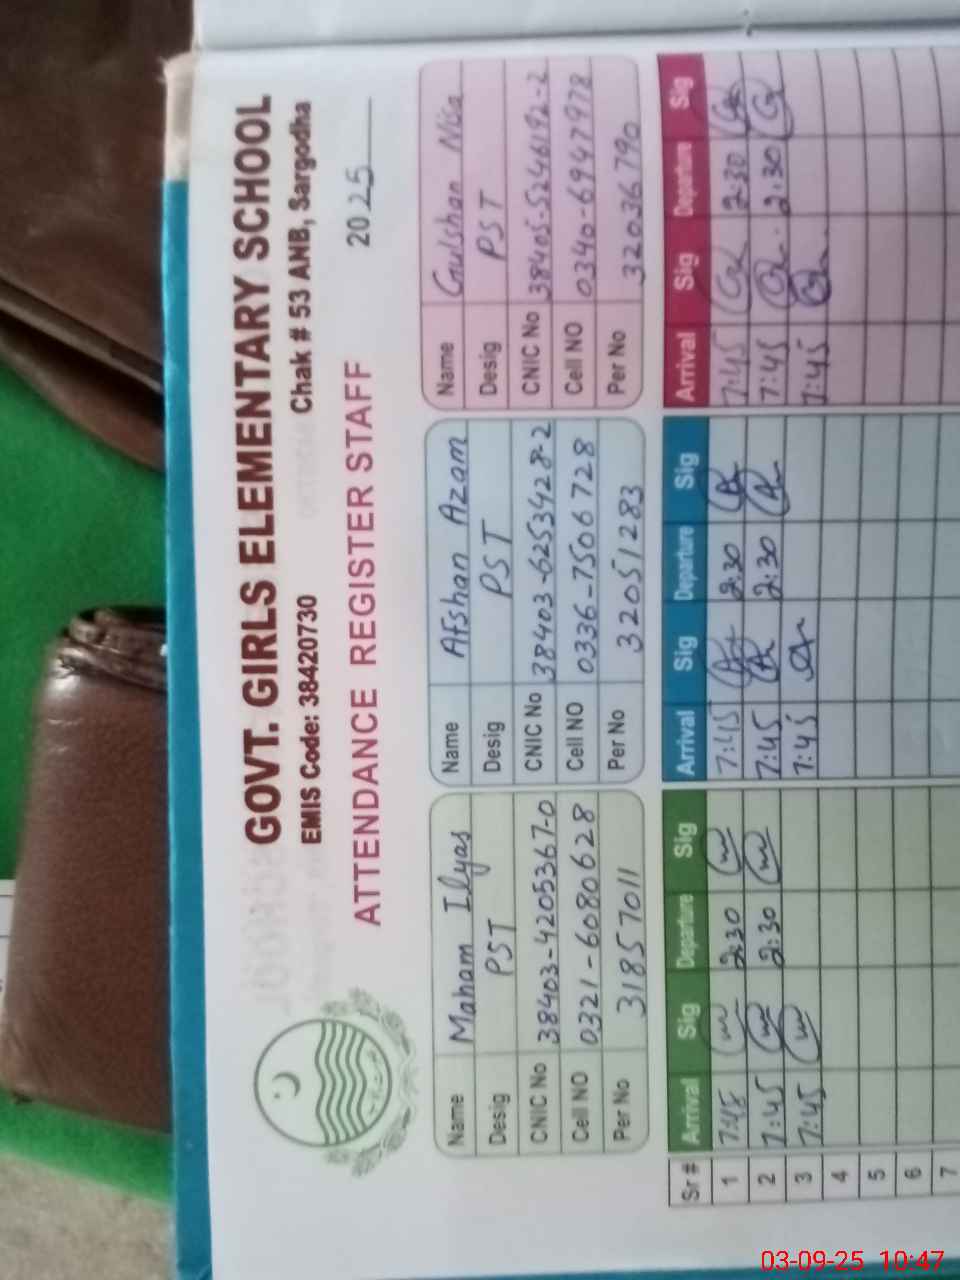 GOVT. GIRLS ELEMENTARY SCHOOL
EMIS Code: 38420730 Chak # 53 ANB, Sargodha
ATTENDANCE REGISTER STAFF 2025
Name Maham Ilyas Name Afshan Azam Name Gulshan Nisa
Desig PST Desig PST Desig PST
CNIC No 38403-4205367-0 CNIC No 38403-6253428-2 CNIC No 38405-5246192-2
Cell NO 0321-6080628 Cell NO 0336-7506728 Cell NO 0340-6947978
Per No 31857011 Per No 32051283 Per No 32036790
Sr # Arrival Sig Departure Sig Arrival Sig Departure Sig Arrival Sig Departure Sig
1 7:45 2:30 7:45 2:30 7:45 2:30
2 7:45 2:30 7:45 2:30 7:45 2:30
3 7:45 7:45 7:45
4
5
6
7
03-09-25 10:47